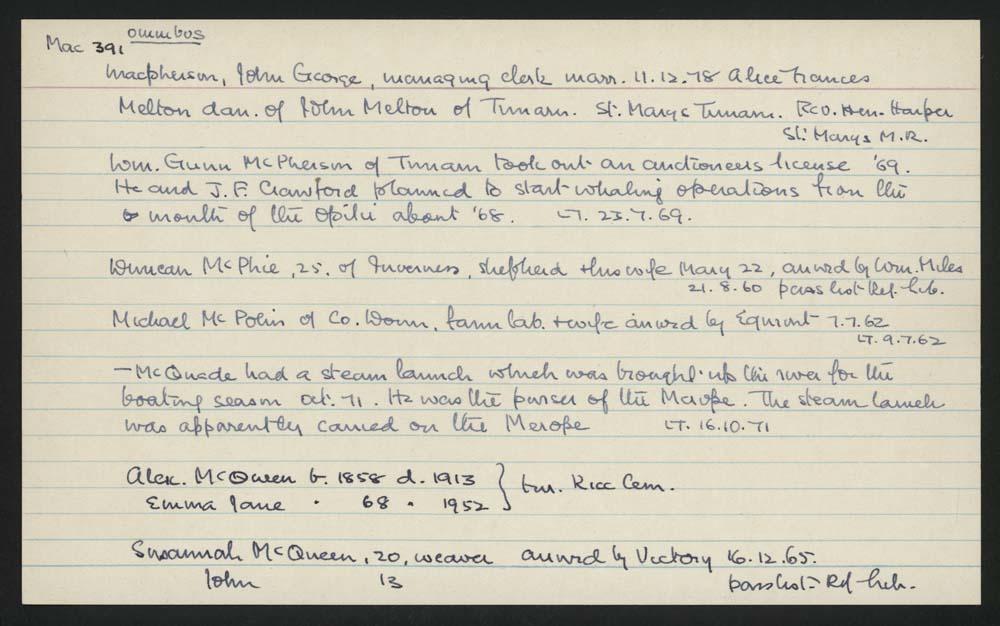 omnibus
Mac 391
Macpherson, John George, managing clerk marr. 11.12.78 Alice Frances
Melton dau. of John Melton of Timaru. St. Marys Timaru. Rev. Hen. Harper
St. Marys M.R.
Wm. Gunn McPherson of Timaru took out an auctioneers license '69.
He and J.F. Crawford planned to start whaling operations from the
mouth of the Opihi about '68. LT. 23.7.69.
Duncan McPhie, 25. of Inverness, shepherd & his wife Mary 22, arrived by Wm. Miles
21.8.60 pass list Ref. lib.
Michael McPolin of Co. Down, farm lab. & wife arrived by Egmont 7.7.62
LT. 9.7.62
— McQuade had a steam launch which was brought up the river for the
boating season oct. 71. He was the purser of the Merope. The steam launch
was apparently carried on the Merope LT. 16.10.71
Alex. McQueen b. 1858 d. 1913 } bur. Ricc Cem.
Emma Jane " 68 " 1952
Susannah McQueen, 20, weaver arrived by Victory 16.12.65.
John 13 pass list Rf lib.